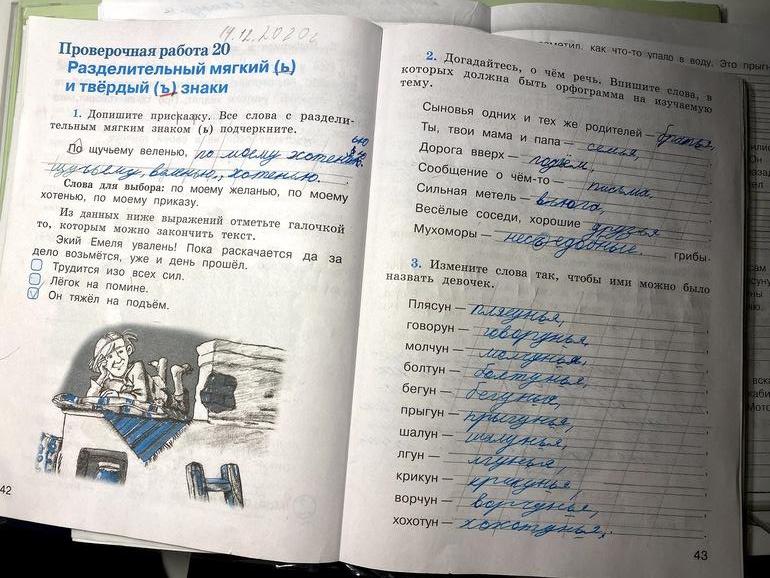 19.12.2020г
Проверочная работа 20
Разделительный мягкий (ь)
и твёрдый (ъ) знаки
1. Допишите присказку. Все слова с раздели-
тельным мягким знаком (ь) подчеркните.
По щучьему веленью, по моему хотенью.
щучьему, хотению.
Слова для выбора: по моему желанью, по моему
хотенью, по моему приказу.
Из данных ниже выражений отметьте галочкой
то, которым можно закончить текст.
Экий Емеля увалень! Пока раскачается да за
дело возьмётся, уже и день прошёл.
Трудится изо всех сил.
Лёгок на помине.
Он тяжёл на подъём.
42
2. Догадайтесь, о чём речь. Впишите слова, в
которых должна быть орфограмма на изучаемую
тему.
Сыновья одних и тех же родителей – братья,
Ты, твои мама и папа – семья,
Дорога вверх – подъём,
Сообщение о чём-то – письма.
Сильная метель – вьюга,
Весёлые соседи, хорошие друзья
Мухоморы – несъедобные грибы.
3. Измените слова так, чтобы ими можно было
назвать девочек.
Плясун – плясунья,
говорун – говорунья,
молчун – молчунья,
болтун – болтунья,
бегун – бегунья,
прыгун – прыгунья,
шалун – шалунья,
лгун – лгунья,
крикун – крикунья,
ворчун – ворчунья,
хохотун – хохотунья,
43
заметил, как что-то упало в воду. Это